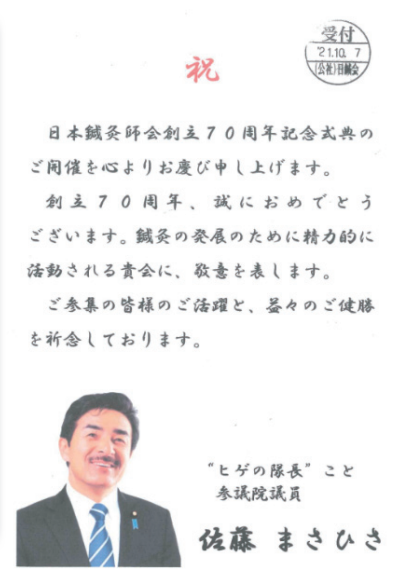 受付
'21.10. 7
(公社)日鍼会
祝
日本鍼灸師会創立70周年記念式典の
ご開催を心よりお慶び申し上げます。
創立70周年、誠におめでとう
ございます。鍼灸の発展のために精力的に
活動される貴会に、敬意を表します。
ご参集の皆様のご活躍と、益々のご健勝
を祈念しております。
“ヒゲの隊長”こと
参議院議員
佐藤 まさひさ